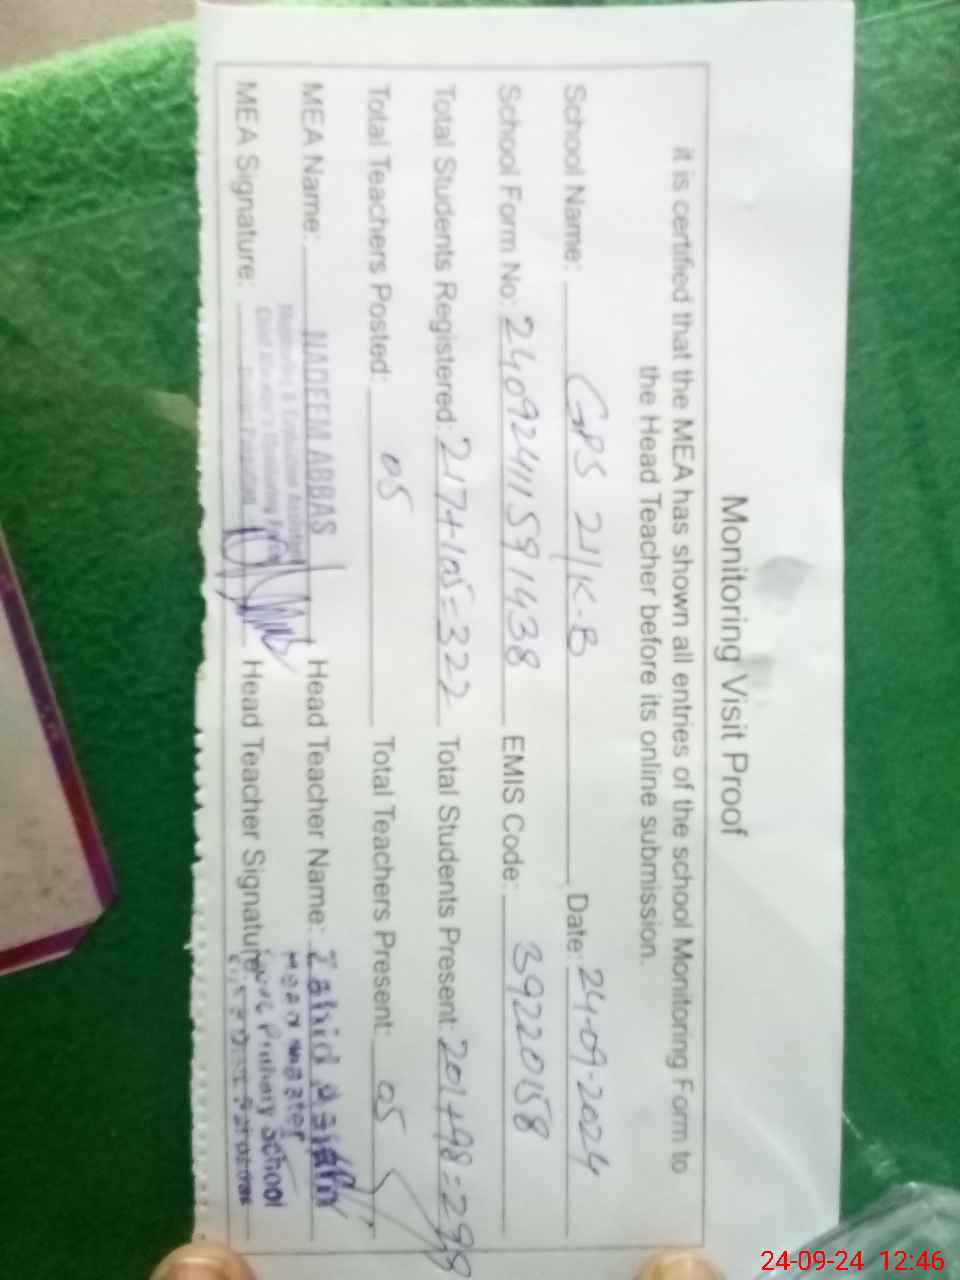 Monitoring Visit Proof
it is certified that the MEA has shown all entries of the school Monitoring Form to
the Head Teacher before its online submission.
School Name: GPS 21/K-B Date: 24-09-2024
School Form No: 24092411591438 EMIS Code: 39220158
Total Students Registered: 217+105=322 Total Students Present: 201+98=299
Total Teachers Posted: 05 Total Teachers Present: 05
MEA Name: NADEEM ABBAS Head Teacher Name: Zahid
Head Master
MEA Signature: Head Teacher Signature:
Primary School
24-09-24 12:46